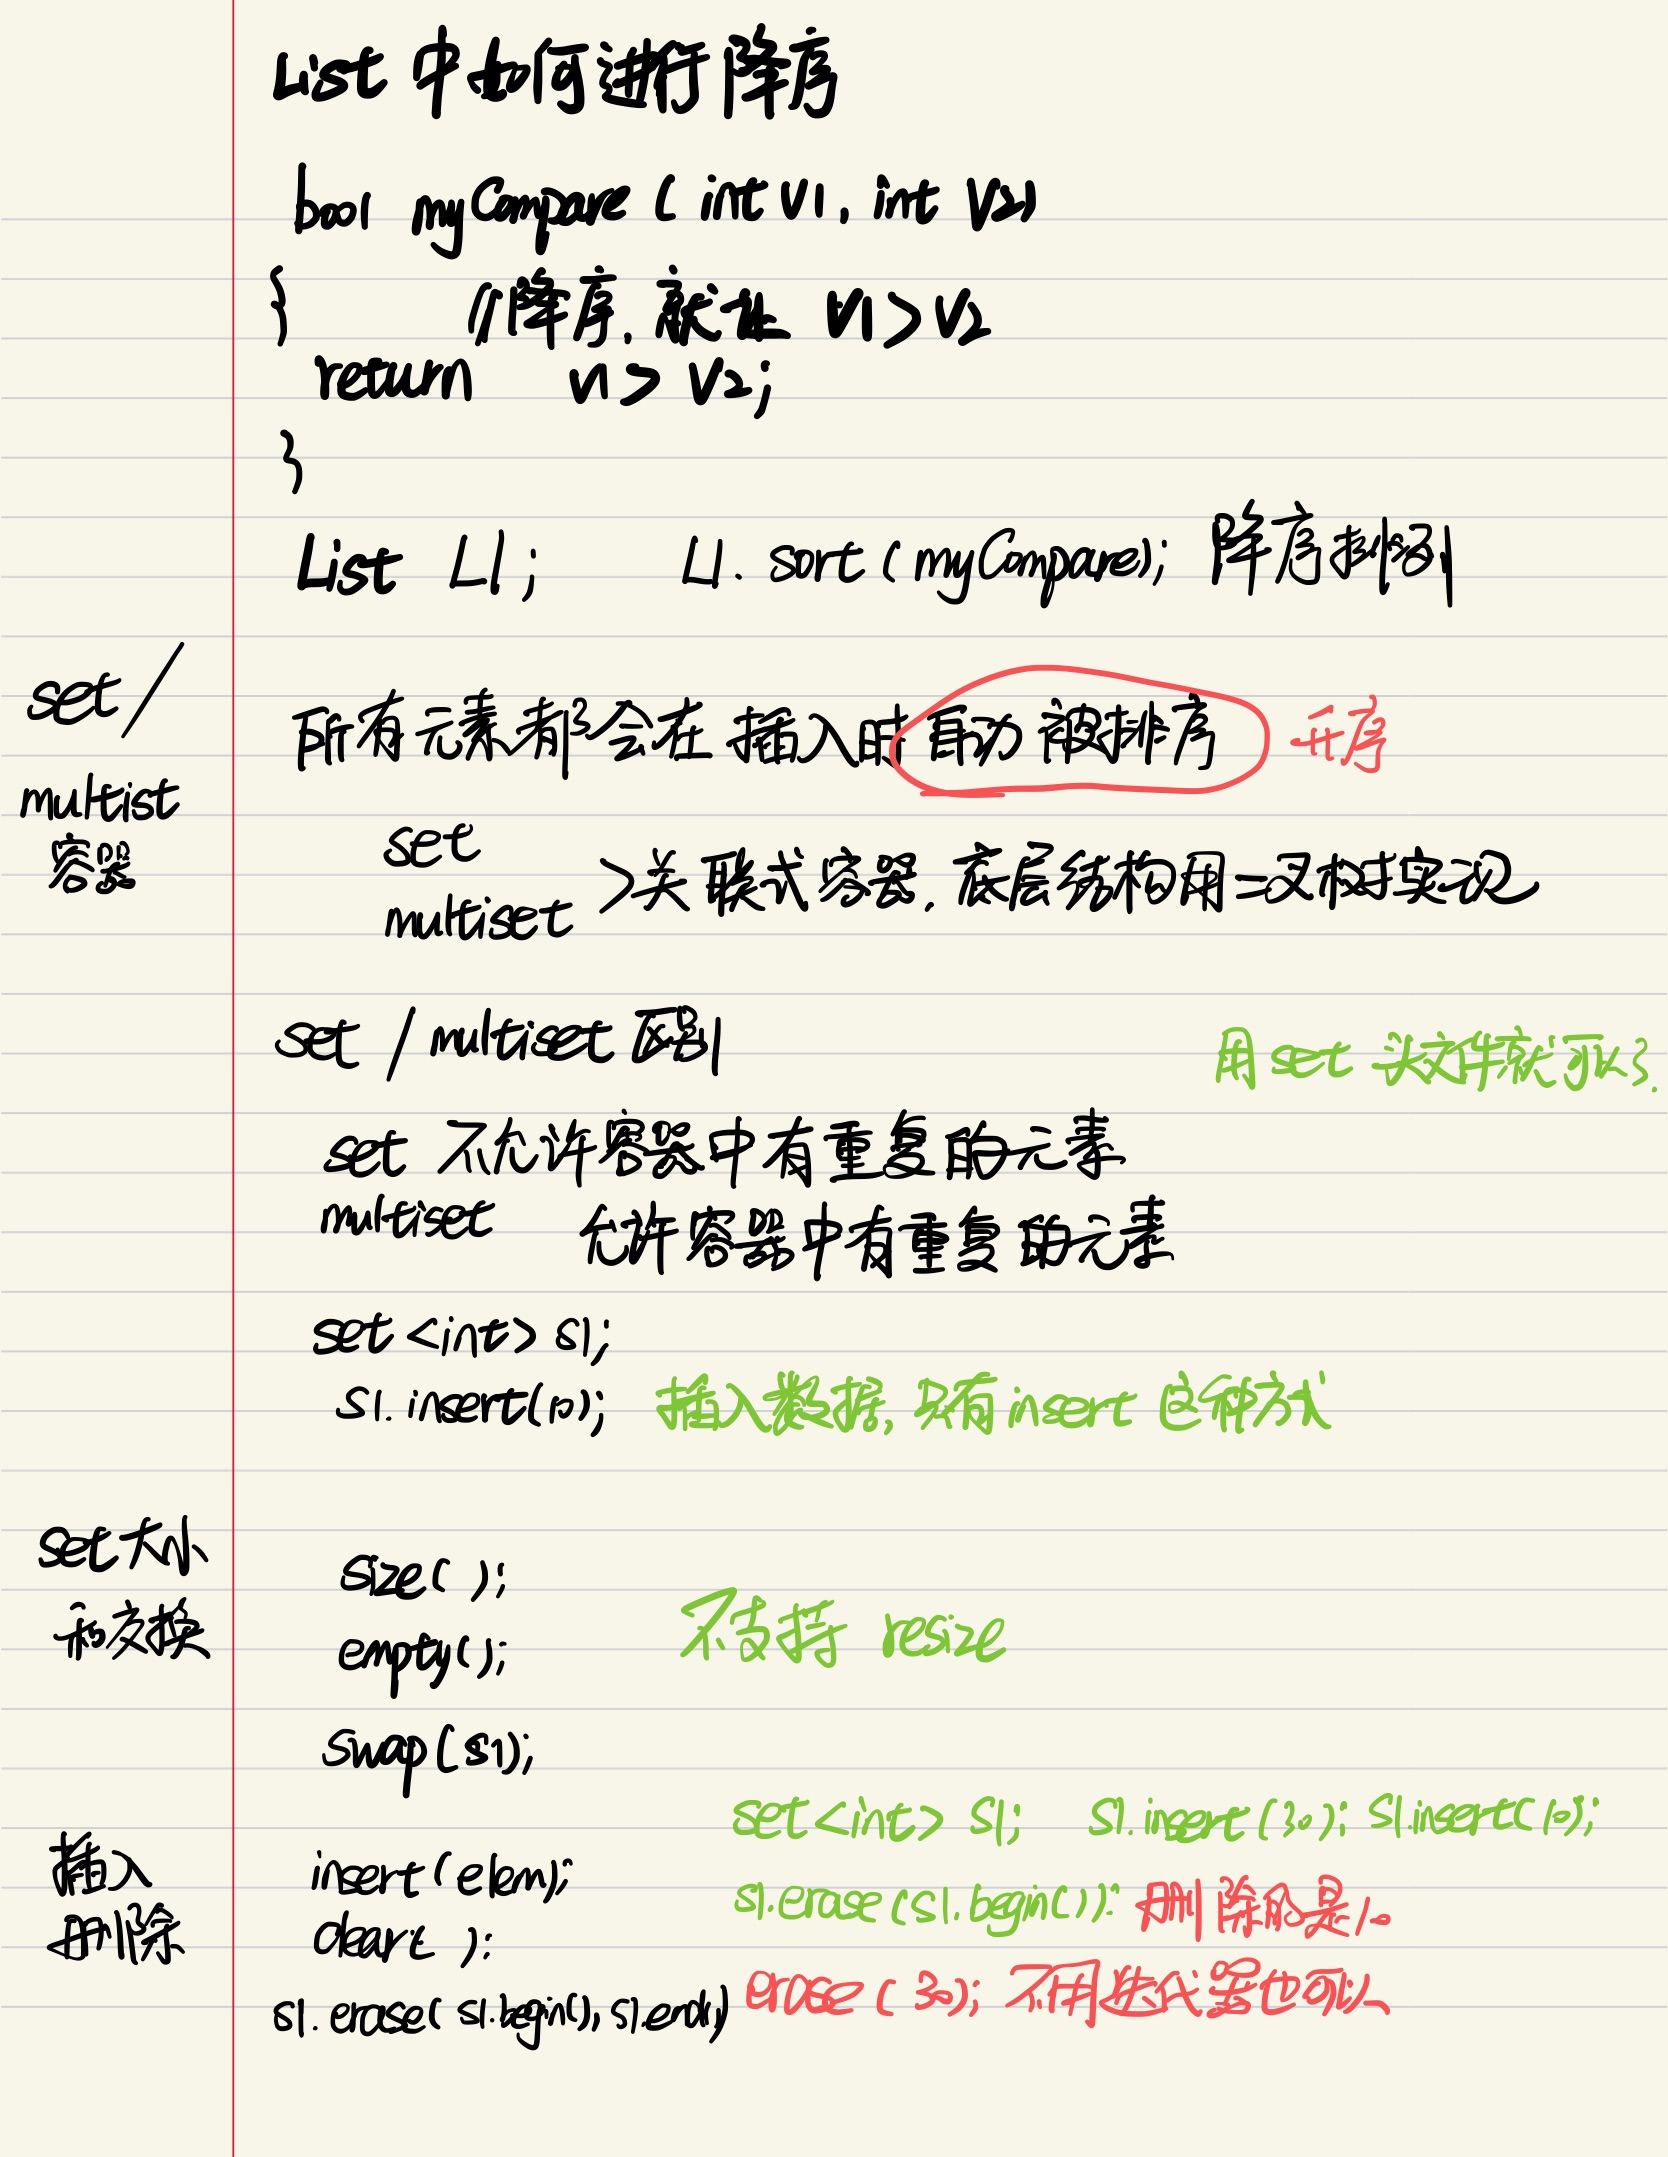 List 中如何进行降序
bool myCompare ( int V1, int V2)
{ //降序, 就让 V1>V2
return V1> V2;
}
List L1; L1. sort ( myCompare); 降序排列
set/
multist
容器
所有元素都会在插入时自动被排序 升序
set
multiset >关联式容器, 底层结构用二叉树实现
set / multiset 区别
用 set 头文件就可以了.
set 不允许容器中有重复的元素
multiset 允许容器中有重复的元素
set <int> S1;
S1. insert(10); 插入数据, 只有 insert 这种方式
set大小
和交换
size( );
empty( );
不支持 resize
swap( s1);
set <int> S1; S1. insert (30); S1.insert(10);
插入
删除
insert( elem);
s1.erase(s1.begin()); 删除的是10
clear( );
s1. erase( s1.begin(), s1.end()) erase ( 30); 不用迭代器也可以